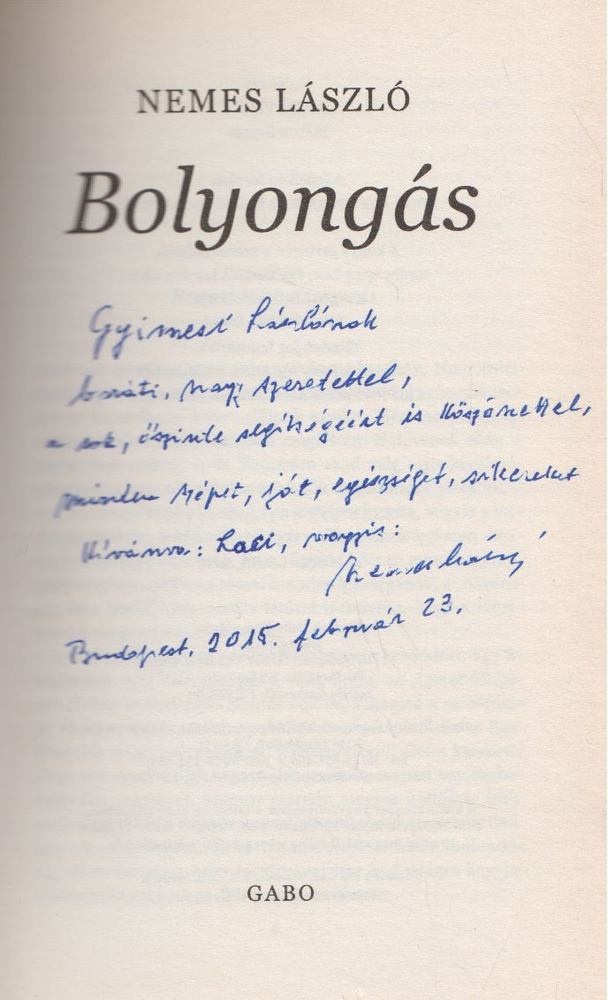 NEMES LÁSZLÓ
Bolyongás
Gyimesi Lászlónak
baráti, nagy szeretettel,
a sok, őszinte segítségéért is köszönettel,
minden szépet, jót, egészséget, sikereket
kívánva: Laci, vagyis:
Nemes László
Budapest, 2015. február 23.
GABO